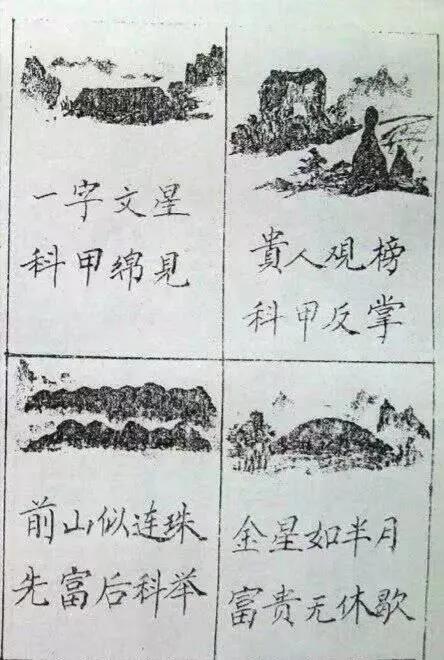 一字文星
科甲绵見
貴人观榜
科甲反掌
前山似连珠
先富后科举
金星如半月
富贵无休歇